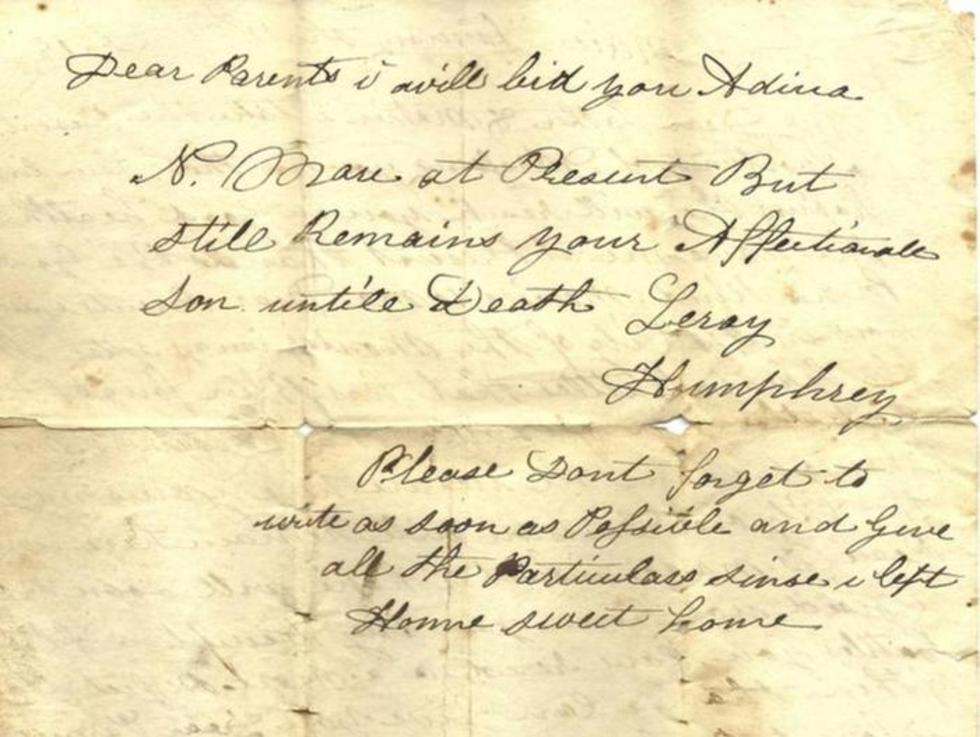 Dear Parents i will bid you Adina
N. More at Present But
still Remains your Affectionate
Son untile Death Leroy
Humphrey
Please Dont forget to
write as soon as Possible and Give
all the Particulars sinse i left
Home sweet home